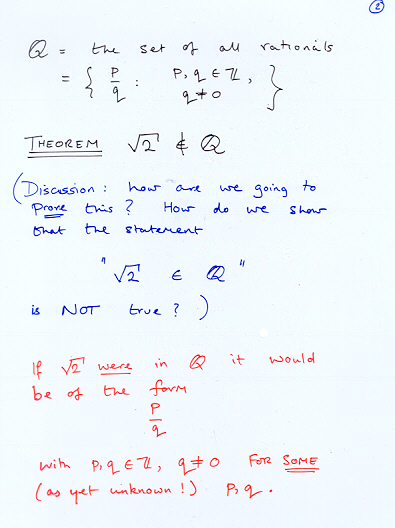 ②
ℚ = the set of all rationals
= { p/q : p, q ∈ ℤ, q ≠ 0 }
THEOREM √2 ∉ ℚ
(Discussion : how are we going to
prove this ? How do we show
that the statement
"√2 ∈ ℚ"
is NOT true ? )
If √2 were in ℚ it would
be of the form
p/q
with p, q ∈ ℤ, q ≠ 0 FOR SOME
(as yet unknown !) p, q .